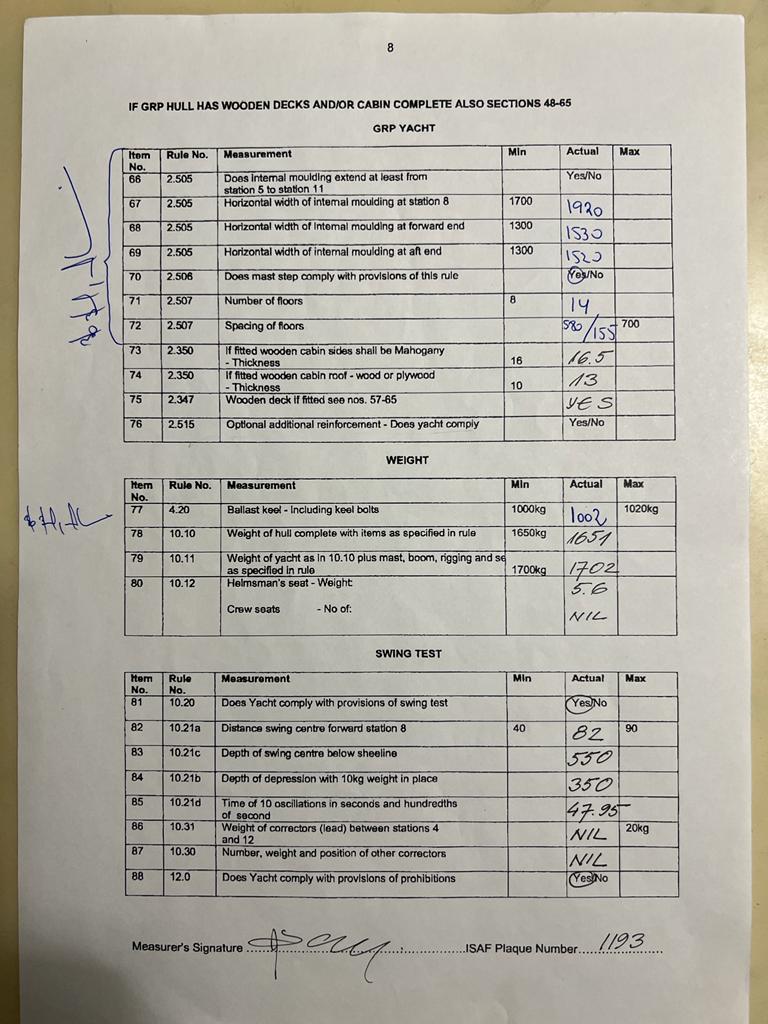 8
IF GRP HULL HAS WOODEN DECKS AND/OR CABIN COMPLETE ALSO SECTIONS 48-65
GRP YACHT
Item No. Rule No. Measurement Min Actual Max
66 2.505 Does internal moulding extend at least from station 5 to station 11 Yes/No
67 2.505 Horizontal width of internal moulding at station 8 1700 1920
68 2.505 Horizontal width of internal moulding at forward end 1300 1530
69 2.505 Horizontal width of internal moulding at aft end 1300 1520
70 2.506 Does mast step comply with provisions of this rule Yes/No
71 2.507 Number of floors 8 14
72 2.507 Spacing of floors 580/155 700
73 2.350 If fitted wooden cabin sides shall be Mahogany - Thickness 16 16.5
74 2.350 If fitted wooden cabin roof - wood or plywood - Thickness 10 13
75 2.347 Wooden deck if fitted see nos. 57-65 YES
76 2.515 Optional additional reinforcement - Does yacht comply Yes/No
WEIGHT
Item No. Rule No. Measurement Min Actual Max
77 4.20 Ballast keel - Including keel bolts 1000kg 1002 1020kg
78 10.10 Weight of hull complete with items as specified in rule 1650kg 1651
79 10.11 Weight of yacht as in 10.10 plus mast, boom, rigging and se as specified in rule 1700kg 1702
80 10.12 Helmsman's seat - Weight: 5.6
Crew seats - No of: NIL
SWING TEST
Item No. Rule No. Measurement Min Actual Max
81 10.20 Does Yacht comply with provisions of swing test Yes/No
82 10.21a Distance swing centre forward station 8 40 82 90
83 10.21c Depth of swing centre below sheeline 550
84 10.21b Depth of depression with 10kg weight in place 350
85 10.21d Time of 10 oscillations in seconds and hundredths of second 47.95
86 10.31 Weight of correctors (lead) between stations 4 and 12 NIL 20kg
87 10.30 Number, weight and position of other correctors NIL
88 12.0 Does Yacht comply with provisions of prohibitions Yes/No
Measurer's Signature ISAF Plaque Number 1193